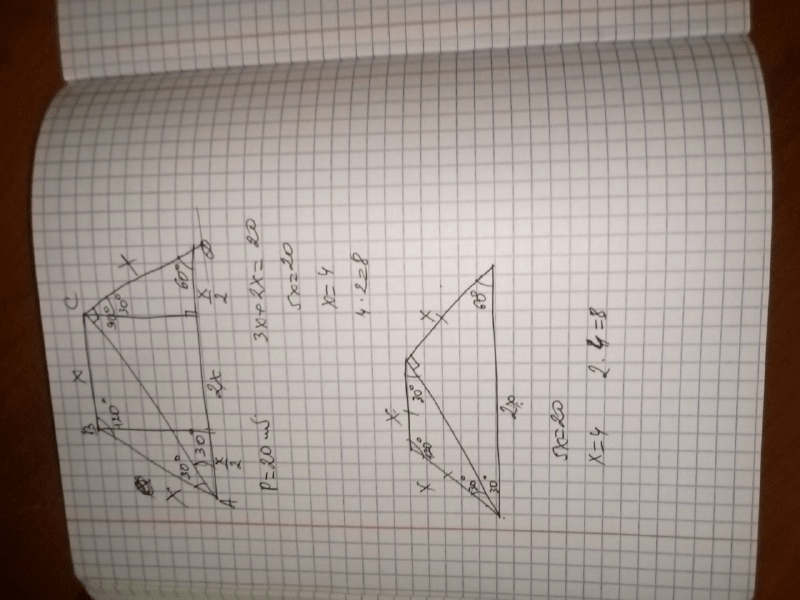 B x C
120° 90° 30°
x x
30° 30° 60°
A x/2 2x x/2 D
P=20
3x+2x=20
5x=20
x=4
4·2=8
x
x 120° 30° x
30° 30° 60°
2x
5x=20
x=4 2·4=8